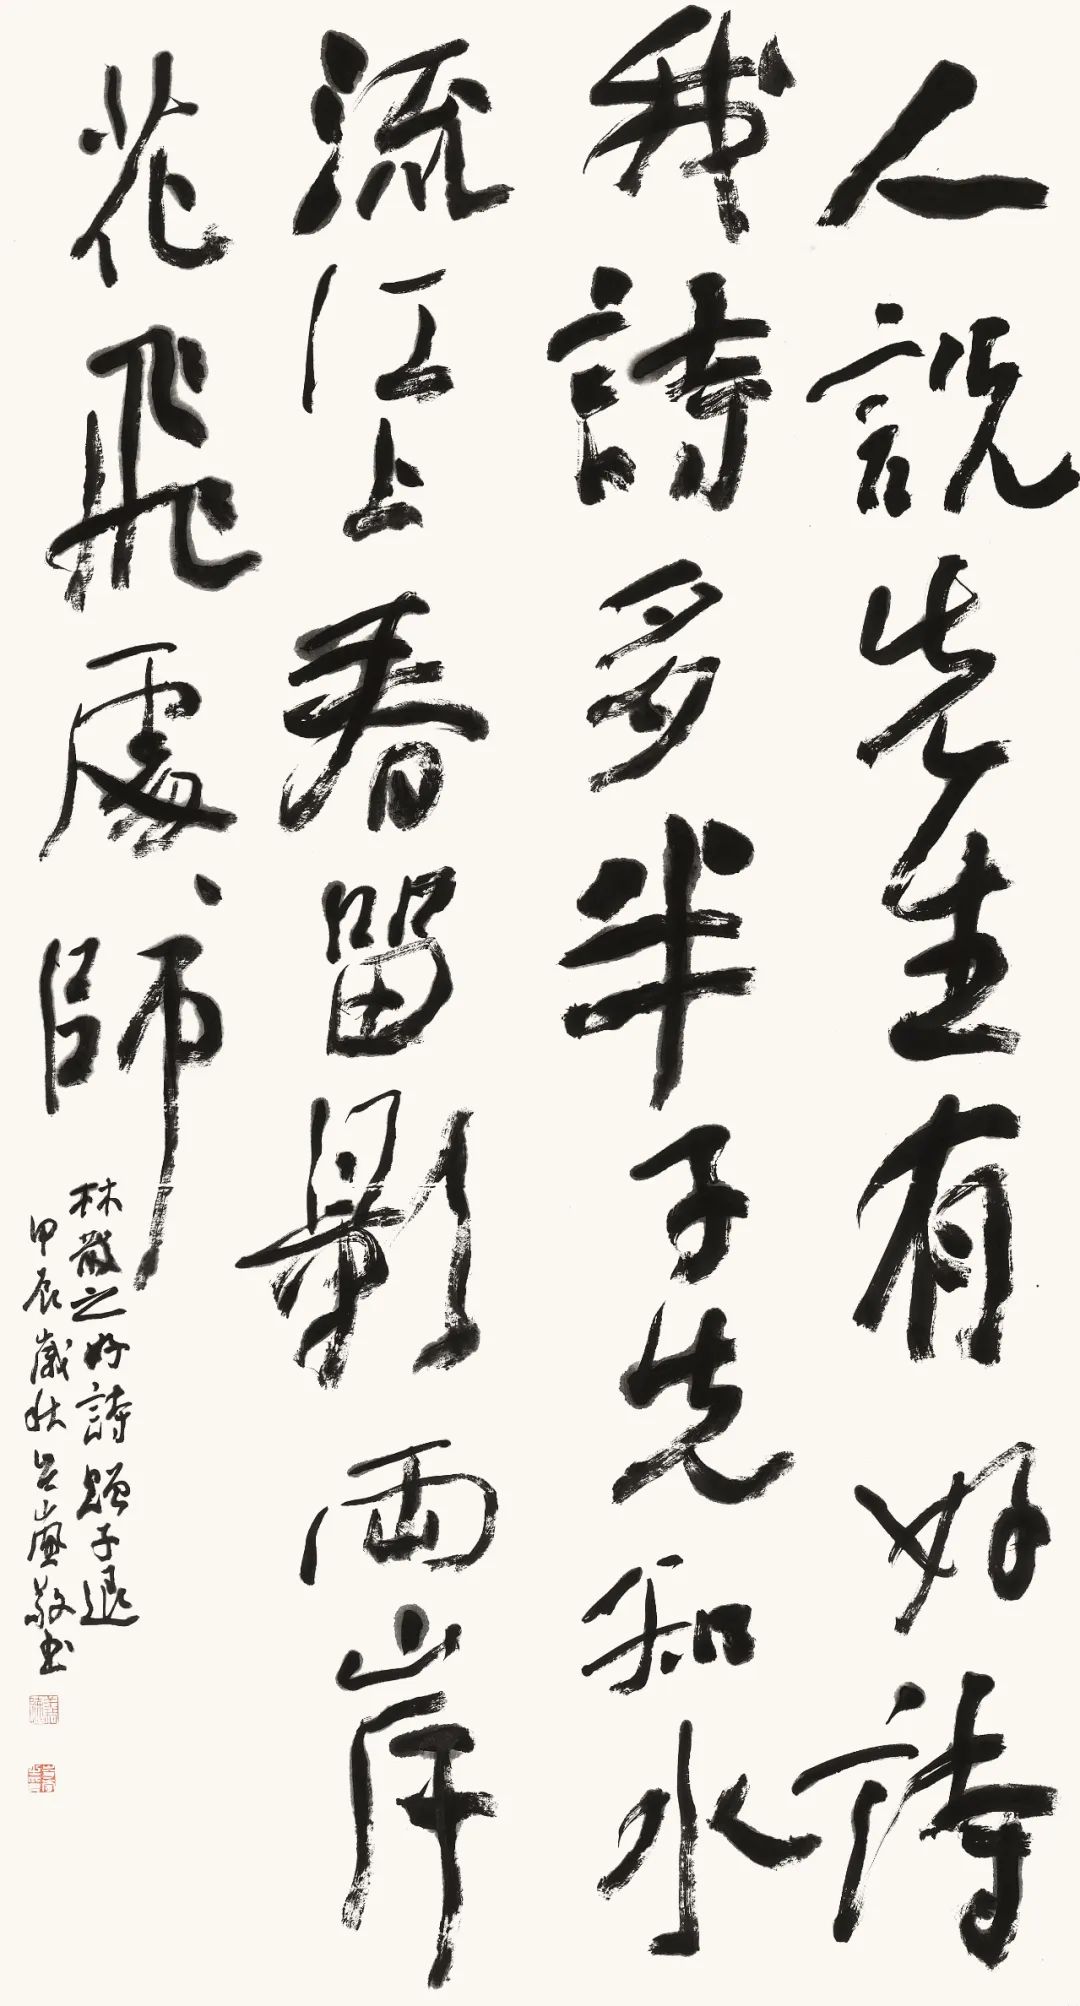 人說先生有好詩
我詩多半子先知水
流江上春留影兩岸
花飛處、師
林散之好詩贈子退
甲辰歲秋 敬书